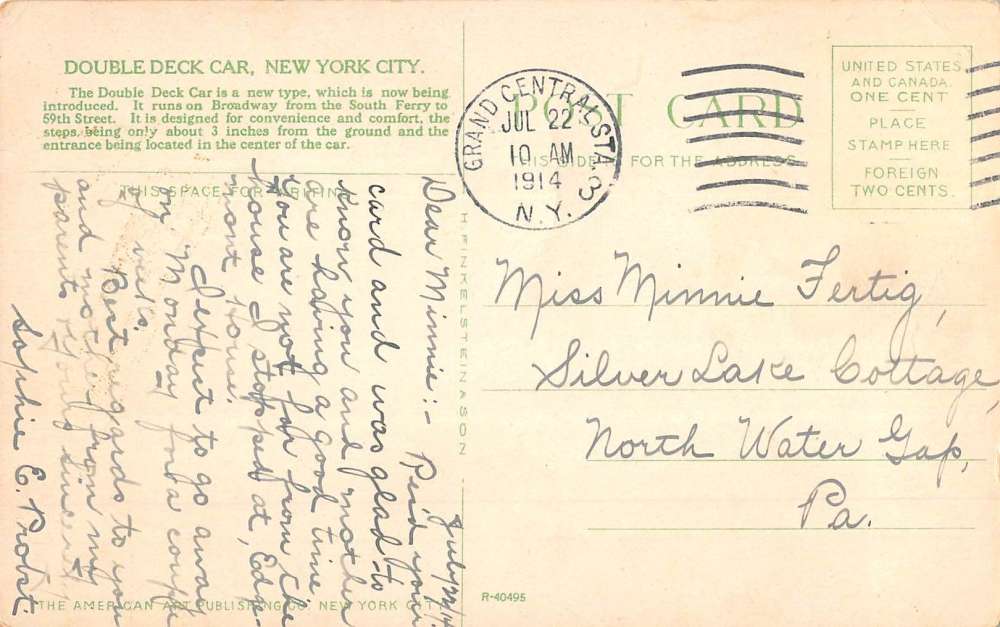 DOUBLE DECK CAR, NEW YORK CITY.
The Double Deck Car is a new type, which is now being
introduced. It runs on Broadway from the South Ferry to
59th Street. It is designed for convenience and comfort, the
steps being only about 3 inches from the ground and the
entrance being located in the center of the car.
THIS SPACE FOR WRITING
POST CARD
THIS SIDE IS FOR THE ADDRESS
GRAND CENTRAL STA. 3
JUL 22
10 AM
1914
N.Y.
UNITED STATES
AND CANADA
ONE CENT
PLACE
STAMP HERE
FOREIGN
TWO CENTS.
July 22/14.
Dear Minnie:- Rec'd your
card and was glad to
know you and mother
are having a good time
You are not far from the
house I stopped at, Edge-
mont House.
I expect to go away
on Monday for a couple
of weeks.
Best regards to you
and mother from my
parents. Yours sincerely
Sophie E. Probst.
Miss Minnie Fertig,
Silver Lake Cottage,
North Water Gap,
Pa.
H. FINKELSTEIN & SON
THE AMERICAN ART PUBLISHING CO. NEW YORK CITY
R-40495